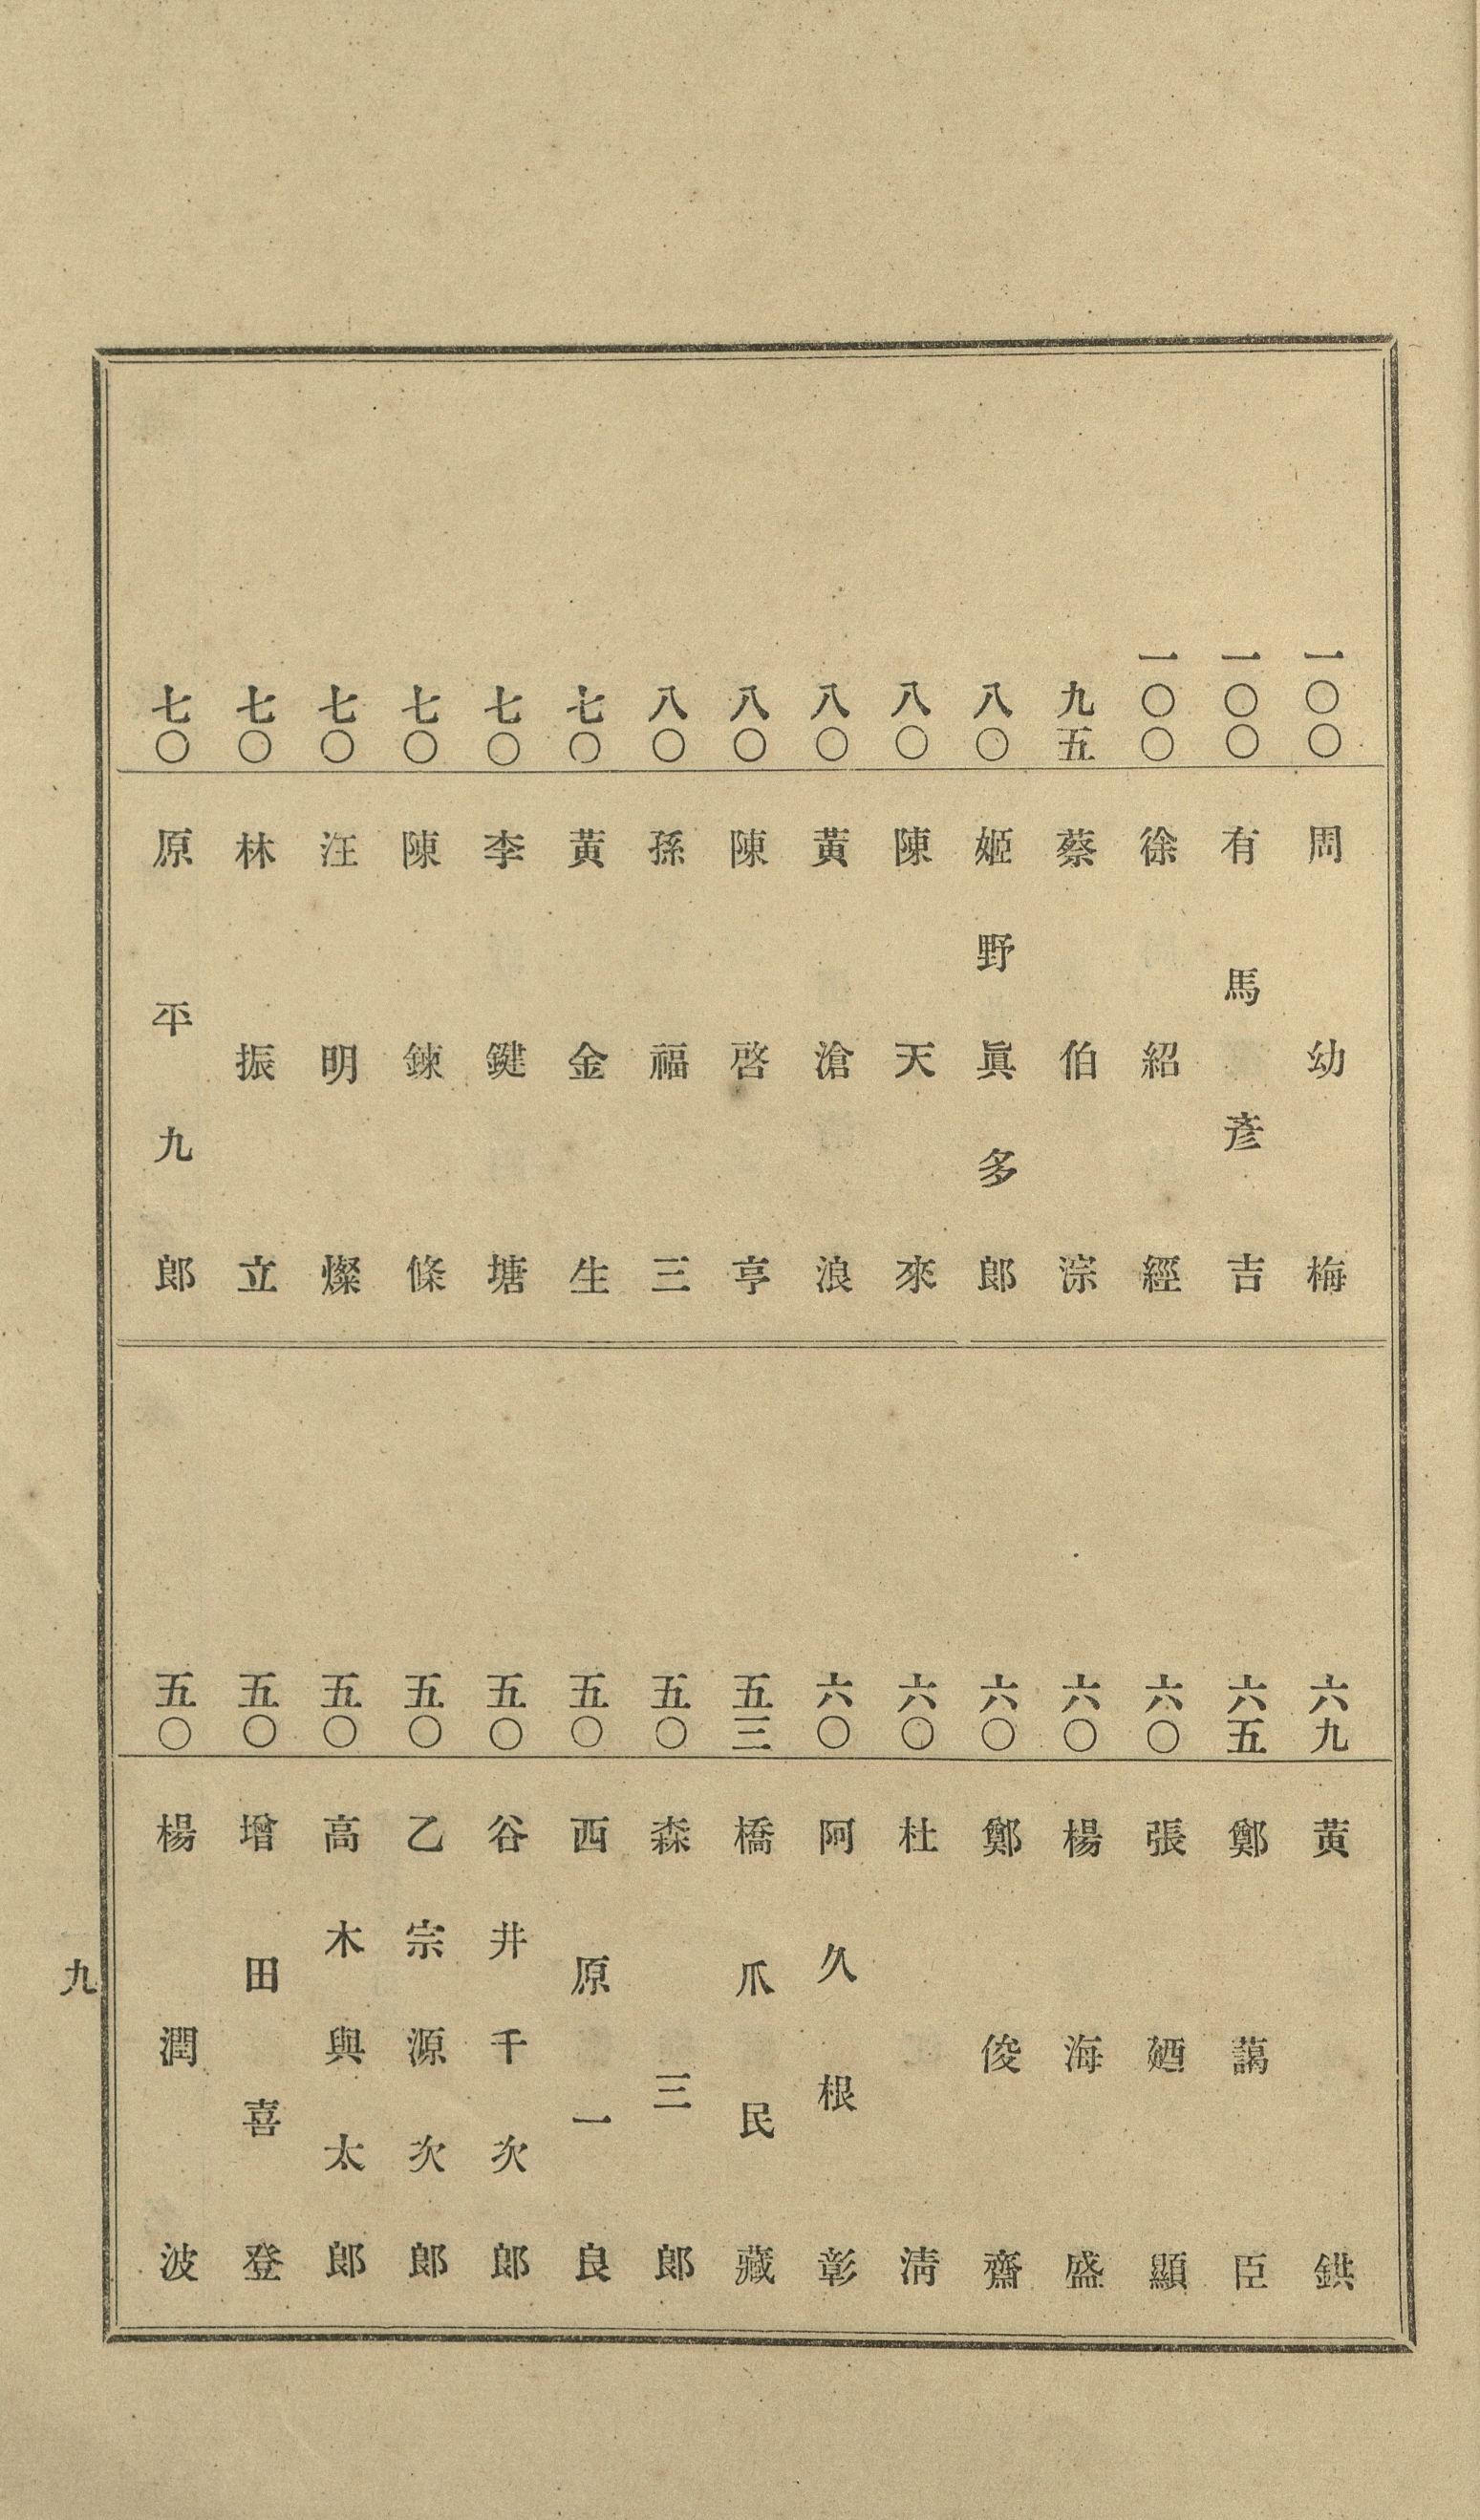 一〇〇 周幼梅
一〇〇 有馬彥吉
一〇〇 徐紹經
九五 蔡伯淙
八〇 姬野眞多郎
八〇 陳天來
八〇 黃滄浪
八〇 陳啓亨
八〇 孫福三
七〇 黃金生
七〇 李鍵塘
七〇 陳鍊條
七〇 汪明燦
七〇 林振立
七〇 原平九郎
六九 黃鉷
六五 鄭藹臣
六〇 張廼顯
六〇 楊海盛
六〇 鄭俊齋
六〇 杜淸
六〇 阿久根彰
五三 橋爪民藏
五〇 森三郎
五〇 西原一良
五〇 谷井千次郎
五〇 乙宗源次郎
五〇 高木與太郎
五〇 增田喜登
五〇 楊潤波
九